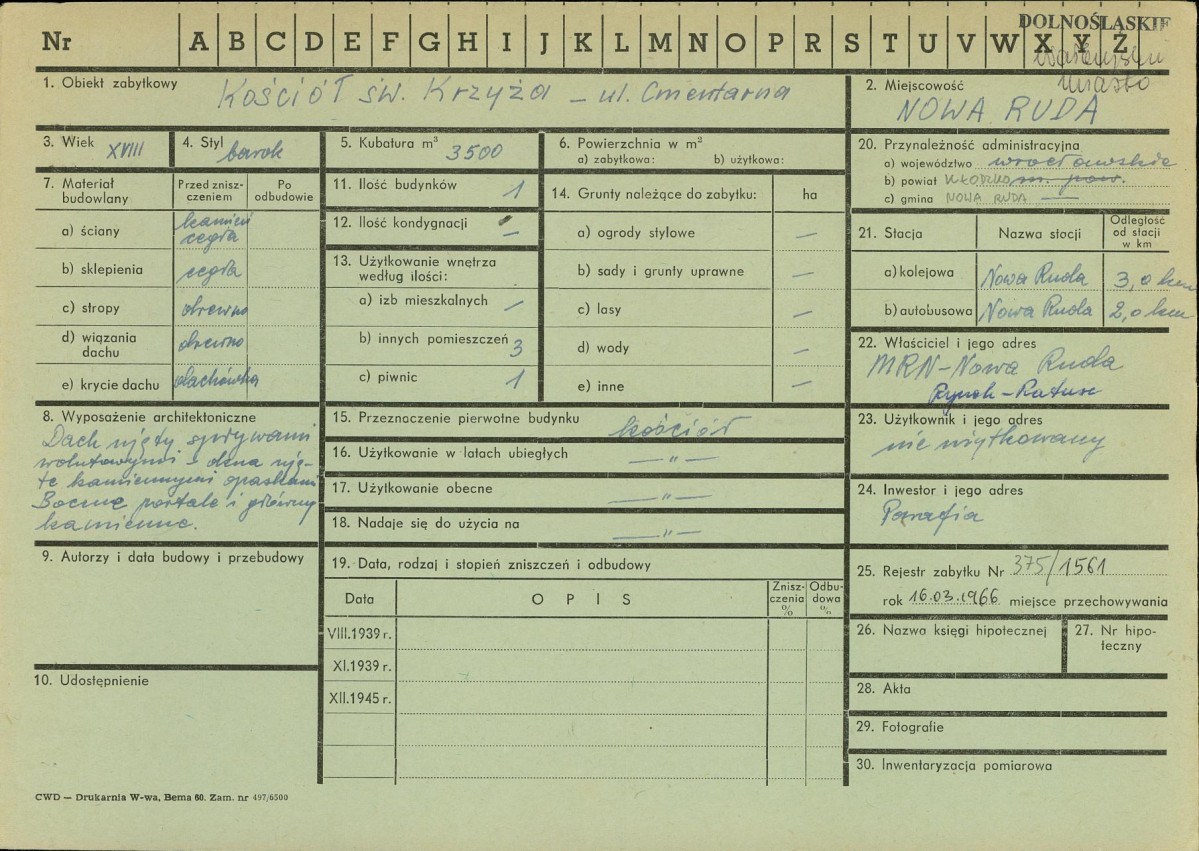 DOLNOŚLĄSKIE
Nr A B C D E F G H I J K L M N O P R S T U V W X Y Z
miasto
1. Obiekt zabytkowy Kościół św. Krzyża – ul. Cmentarna
2. Miejscowość
NOWA RUDA
3. Wiek XVIII
4. Styl barok
5. Kubatura m³ 3500
6. Powierzchnia w m²
a) zabytkowa: b) użytkowa:
20. Przynależność administracyjna
a) województwo wrocławskie
b) powiat KŁODZKO m. pow.
c) gmina NOWA RUDA —
7. Materiał budowlany
Przed zniszczeniem
Po odbudowie
a) ściany kamień cegła
b) sklepienia cegła
c) stropy drewno
d) wiązania dachu drewno
e) krycie dachu dachówka
11. Ilość budynków 1
12. Ilość kondygnacji —
13. Użytkowanie wnętrza
według ilości:
a) izb mieszkalnych —
b) innych pomieszczeń 3
c) piwnic 1
14. Grunty należące do zabytku: ha
a) ogrody stylowe —
b) sady i grunty uprawne —
c) lasy —
d) wody —
e) inne —
21. Stacja Nazwa stacji Odległość od stacji w km
a) kolejowa Nowa Ruda 3,0 km
b) autobusowa Nowa Ruda 2,0 km
22. Właściciel i jego adres
MRN – Nowa Ruda
Rynek – Ratusz
8. Wyposażenie architektoniczne
Dach ujęty spływami
wolutowymi, okna uję-
te kamiennymi opaskami
Boczne portale i główny
kamienne.
15. Przeznaczenie pierwotne budynku kościół
16. Użytkowanie w latach ubiegłych —"—
17. Użytkowanie obecne —"—
18. Nadaje się do użycia na —"—
23. Użytkownik i jego adres
nie użytkowany
24. Inwestor i jego adres
Parafia
9. Autorzy i data budowy i przebudowy
19. Data, rodzaj i stopień zniszczeń i odbudowy
Data O P I S Zniszczenia % Odbudowa %
VIII.1939 r.
XI.1939 r.
XII.1945 r.
25. Rejestr zabytku Nr 375/1561
rok 16.03.1966 miejsce przechowywania
26. Nazwa księgi hipotecznej
27. Nr hipoteczny
10. Udostępnienie
28. Akta
29. Fotografie
30. Inwentaryzacja pomiarowa
CWD — Drukarnia W-wa, Bema 60. Zam. nr 497/6500